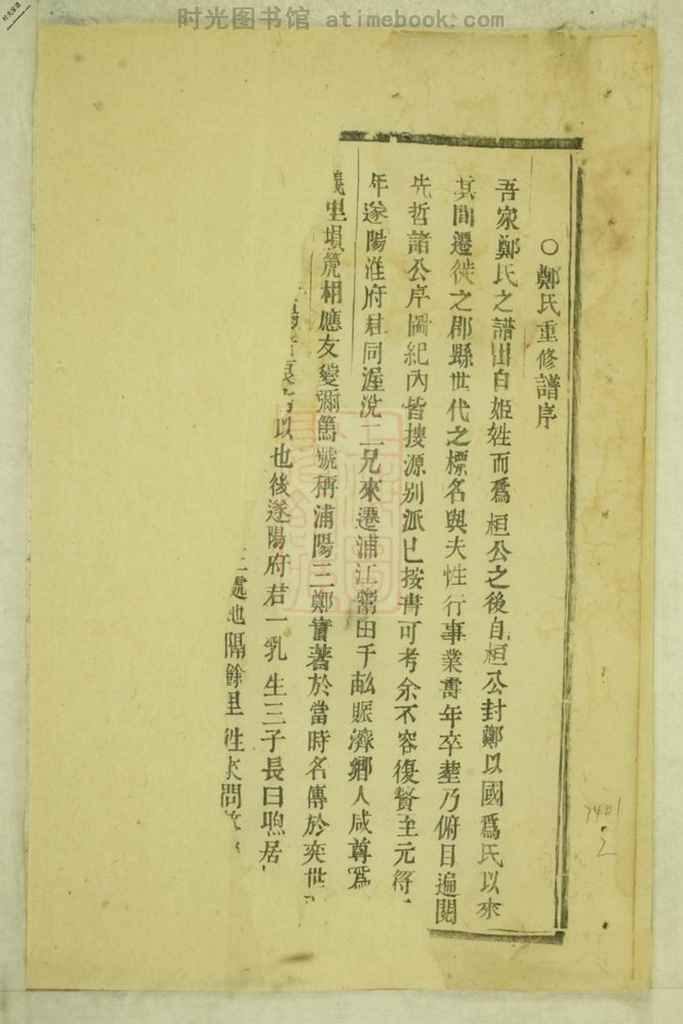 时光图书馆 atimebook.com
○鄭氏重修譜序
吾家鄭氏之譜出自姬姓而爲桓公之後自桓公封鄭以國爲氏以來
其間遷徙之郡縣世代之標名與夫性行事業壽年卒塟乃俯目遍閱
先哲諸公序圖紀內皆搜源别派已按冊可考余不容復贅至元符
年遂陽淮府君同渥況二兄來遷浦江鬻田千畝賑濟鄉人咸尊爲
義里塤箎相應友愛彌篤號稱浦陽三鄭實著於當時名傳於奕世
以也後遂陽府君一乳生三子長曰煦居
三處地隔餘里徃來問
7401